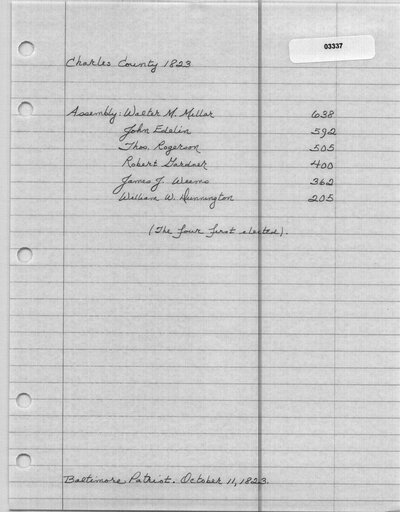 03337
Charles County 1823
Assembly: Walter M. Millar 638
John Edelin 592
Thos. Rogerson 505
Robert Gardner 400
James J. Weems 362
William W. Dunnington 205
(The four first elected).
Baltimore Patriot. October 11, 1823.